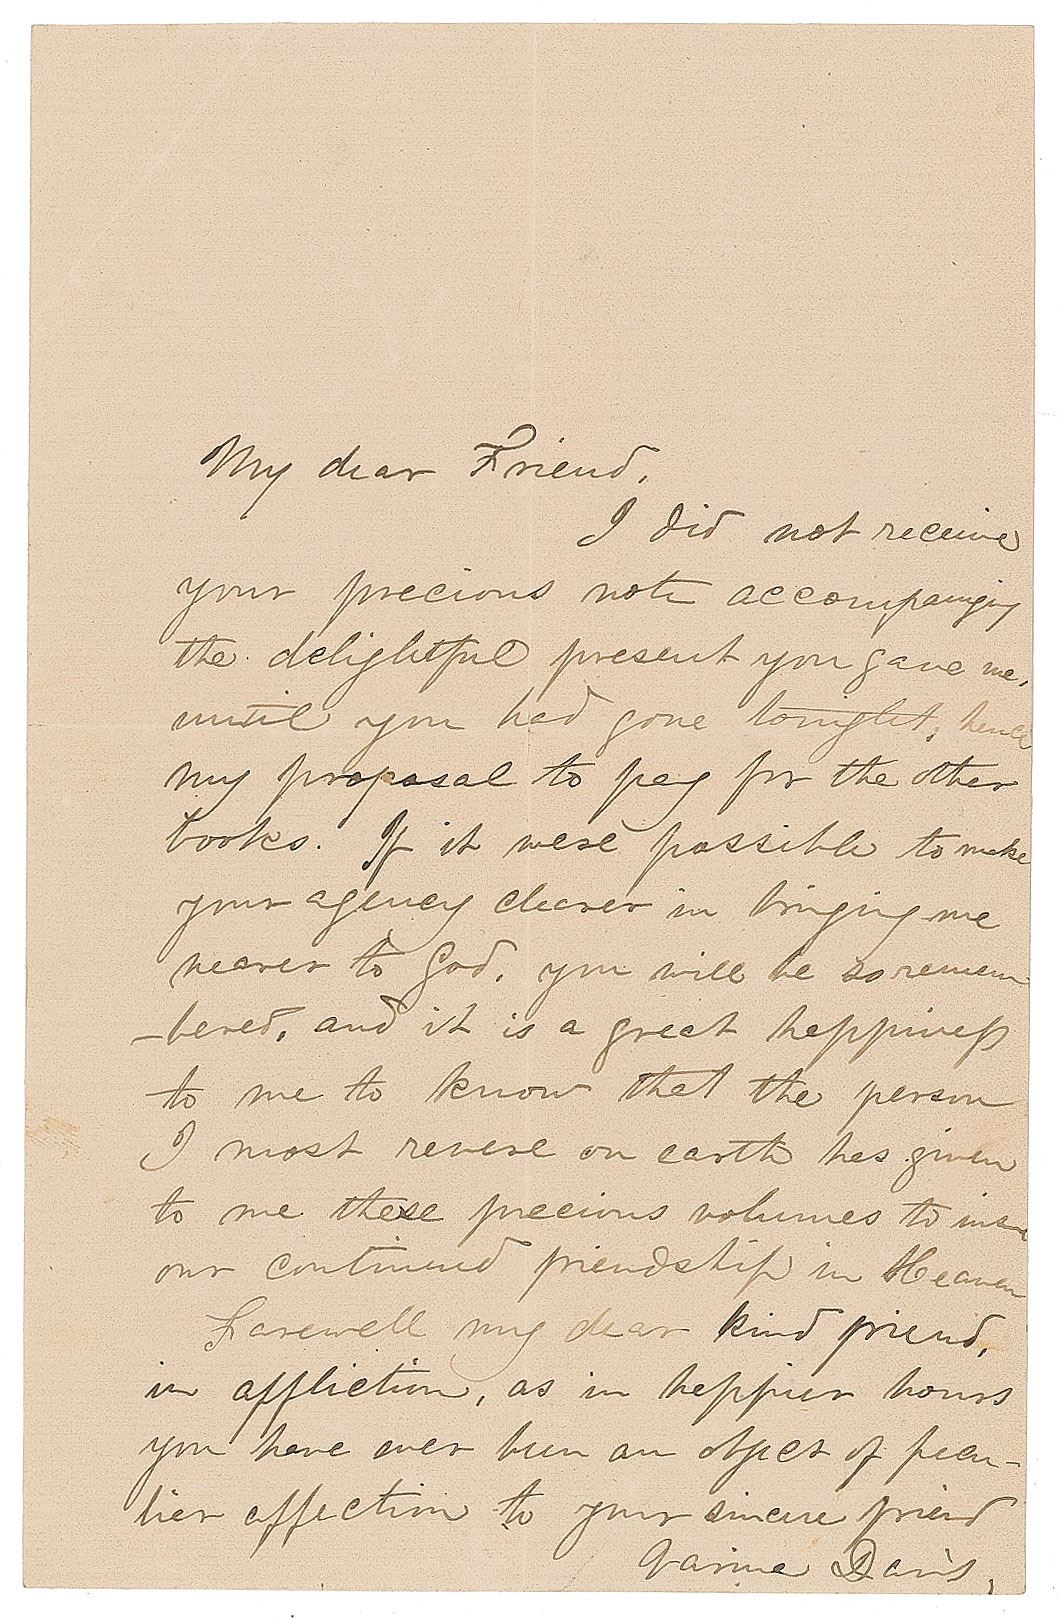 My dear Friend,
I did not receive
your precious note accompanying
the delightful present you gave me,
until you had gone tonight, hence
my proposal to pay for the other
books. If it were possible to make
your agency clearer in bringing me
nearer to God, you will be so remem-
-bered, and it is a great happiness
to me to know that the person
I most revere on earth has given
to me these precious volumes to insure
our continued friendship in Heaven
Farewell my dear kind friend,
in affliction, as in happier hours
you have ever been an object of pecu-
liar affection to your sincere friend
Varina Davis,